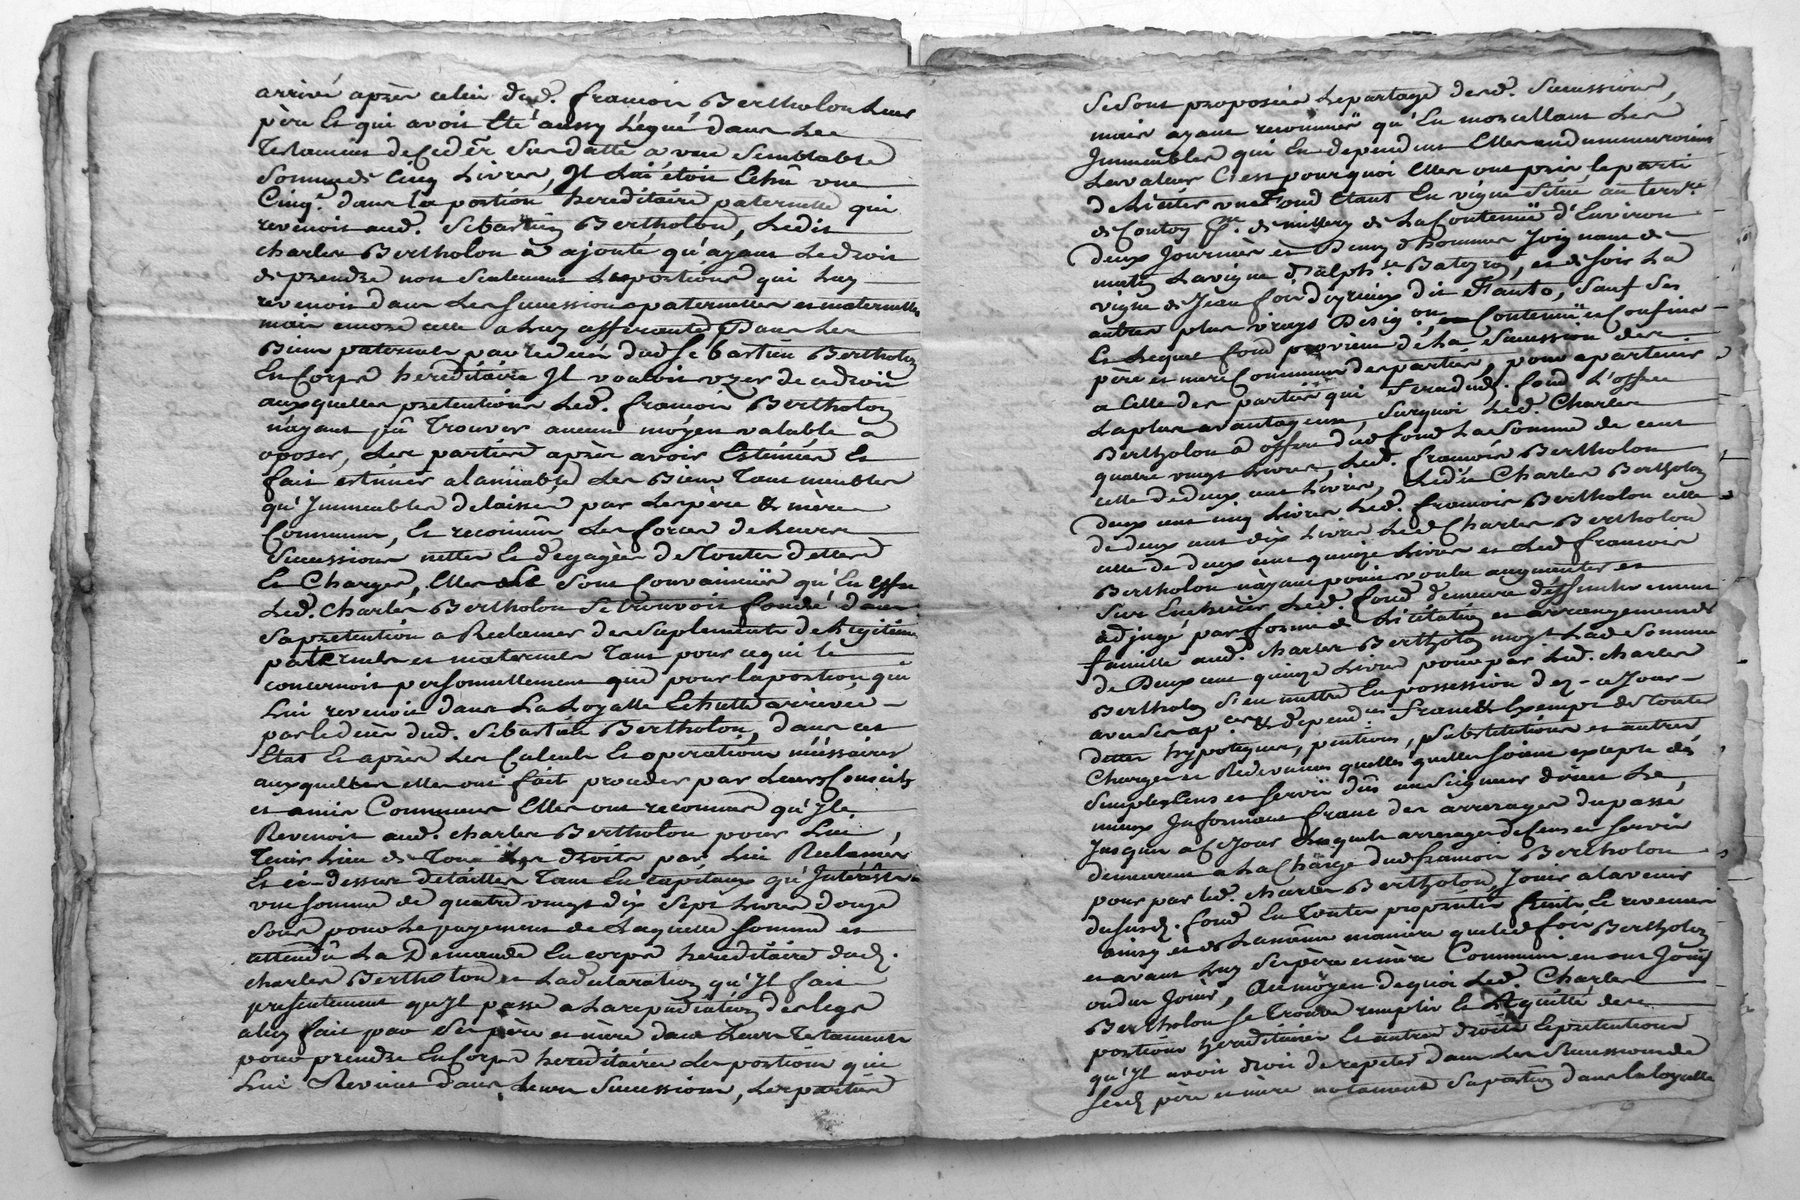 arrivé après celui dud. françois Bertholon Leur
père Et qui avoit Eté aussy Légué dans Le
Testament de Ceder. Sus datté a une Semblable
Somme de Cinq Livres, Jl Lui étoit Echû une
Cinq.e dans la portion hereditaire paternelle qui
revenoit aud. Sebastien Bertholon, Ledit
charles Bertholon à ajouté qu'ayant Le droit
de prendre non Seulement Les portions qui Luy
revenoit dans Les Successions paternelles et maternelles
mais encore celle a Luy afferante Dans Les
Biens paternels par le decès dud Sebastien Bertholon
En Corps héréditaire Jl vouloit uzer de ce droit
auxquelles pretentions Led. françois Bertholon
n'ayant pû Trouver aucun moyen valable a
oposer, Les parties après avoir Estimées Et
fait estimer alamiable Les Biens Tant meubles
qu'Jmmeubles delaissés par Les père & mère
Communs, Et reconnûe Les forces de Leurs
Successions nettes Et degagées de Toutes dettes
Et Charges, Elles Se Sont Convaincües qu'En Effet
Led. Charles Bertholon Se trouvoit fondé dans
Sa pretention a Reclamer des Suplements de Legitime
paternels et maternels Tant pour ce qui le
concernoit personnellement que pour la portion qui
Lui revenoit dans La Loyalle Echutte arrivée
par le decès dud. Sebastien Bertholon, dans cet
Etat Et après Les Calculs Et operations necessaires
auxquelles elles ont fait proceder par Leurs Conseils
et amis Communs Elles ont reconnus qu'Jl
Revenoit aud. charles Bertholon pour Lui
Tenir Lieu de Tous Les droits par Lui Reclamés
Et ci-dessus detaillés Tant En capitaux qu'Jntérêts
une somme de quatre vingt dix Sept Livres douze
Sous pour Le payement de Laquelle Somme et
attendû La Demande En corps hereditaire dud.
charles Bertholon et La declaration qu'Jl fait
presentement qu'Jl passe a La repudiation des legs
a luy fait par Ses père et mère dans Leurs Testaments
pour prendre En Corps héréditaire Les portions qui
Lui Revient dans Leurs Successions, Les parties
Se Sont proposées Le partage desd. Successions,
mais ayant reconnues qu'En morcellant Les
Jmmeubles qui En dependent Elles en diminueroient
La valeur C'est pourquoi Elles ont pris le parti
de Liciter un Fond Etant En vigne Situé au terr.re
de Contoy P.sse de millery de La Contenüe d'Environ
deux Journées et Demy d'hommes Joignant de
matin La vigne de Batoyron, et de Soir La
vigne de Jean dit Fanto, Sauf Ses
autres plus vrays Désig.on, Contenüe et Confins
Et Lequel fond provient de La Succession des
père et mere Communs des parties, pour apartenir
a Celle des parties qui Fera dud. fond L'offre
La plus avantageuse, Surquoi Led. Charles
Bertholon à offert dud fond La Somme de cent
quatre vingt Livres, Led. françois Bertholon
celle de deux cent Livres, Ledit Charles Bertholon
deux cent cinq Livres Led. françois Bertholon celle
de deux cent dix Livres Led Charles Bertholon
celle de deux cent quinze Livres et Led françois
Bertholon n'ayant point voulu augmenter et
Sur Encherir, Led. fond demeure définitivement
adjugé par forme de Licitation et arrangement de
famille aud. charles Bertholon moy.t Lad Somme
de Deux cent quinze Livres pour par Led. charles
Bertholon S'en mettre En possession dez-ce Jour
avec Ses ap.ces & depend.ces franc & Exempt de toutes
dettes hypoteques, pentions, Substitutions et autres
Charges et Redevances quelles quelles Soient excepté du
Simple Cens et Servis dûs au Seigneur direct Le
mieux Jnformant franc des arrerages du passé
Jusques a Ce Jour Lesquels arrerages de Cens et Servis
demeurent a La Charge dud françois Bertholon
pour par led. charles Bertholon, Jouir a l'avenir
du Susd. fond En Toutes proprietés fruits Et revenus
ainsy et de La même maniere que led foir Bertholon
et avant Luy Ses père et mère Communs en ont Joüy
ou dû Joüir, Au moyen de quoi Led. Charles
Bertholon Se Trouve remplir Et Aquitté des
portions hereditaires Et autres droits Et pretentions
qu'Jl avoit droit de repeter dans Les Successions de
Sesd père et mère notament Sa portion dans La loyalle